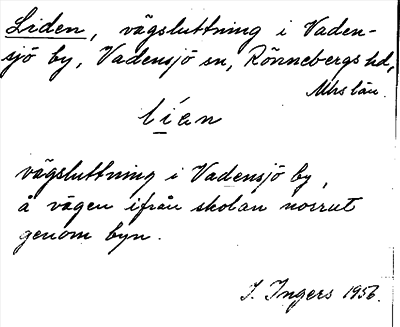 Liden, vägsluttning i Vaden-
sjö by, Vadensjö sn, Rönnebergs hd,
Mhs län.
líen
vägsluttning i Vadensjö by,
å vägen ifrån skolan norrut
genom byn.
I. Ingers 1956.